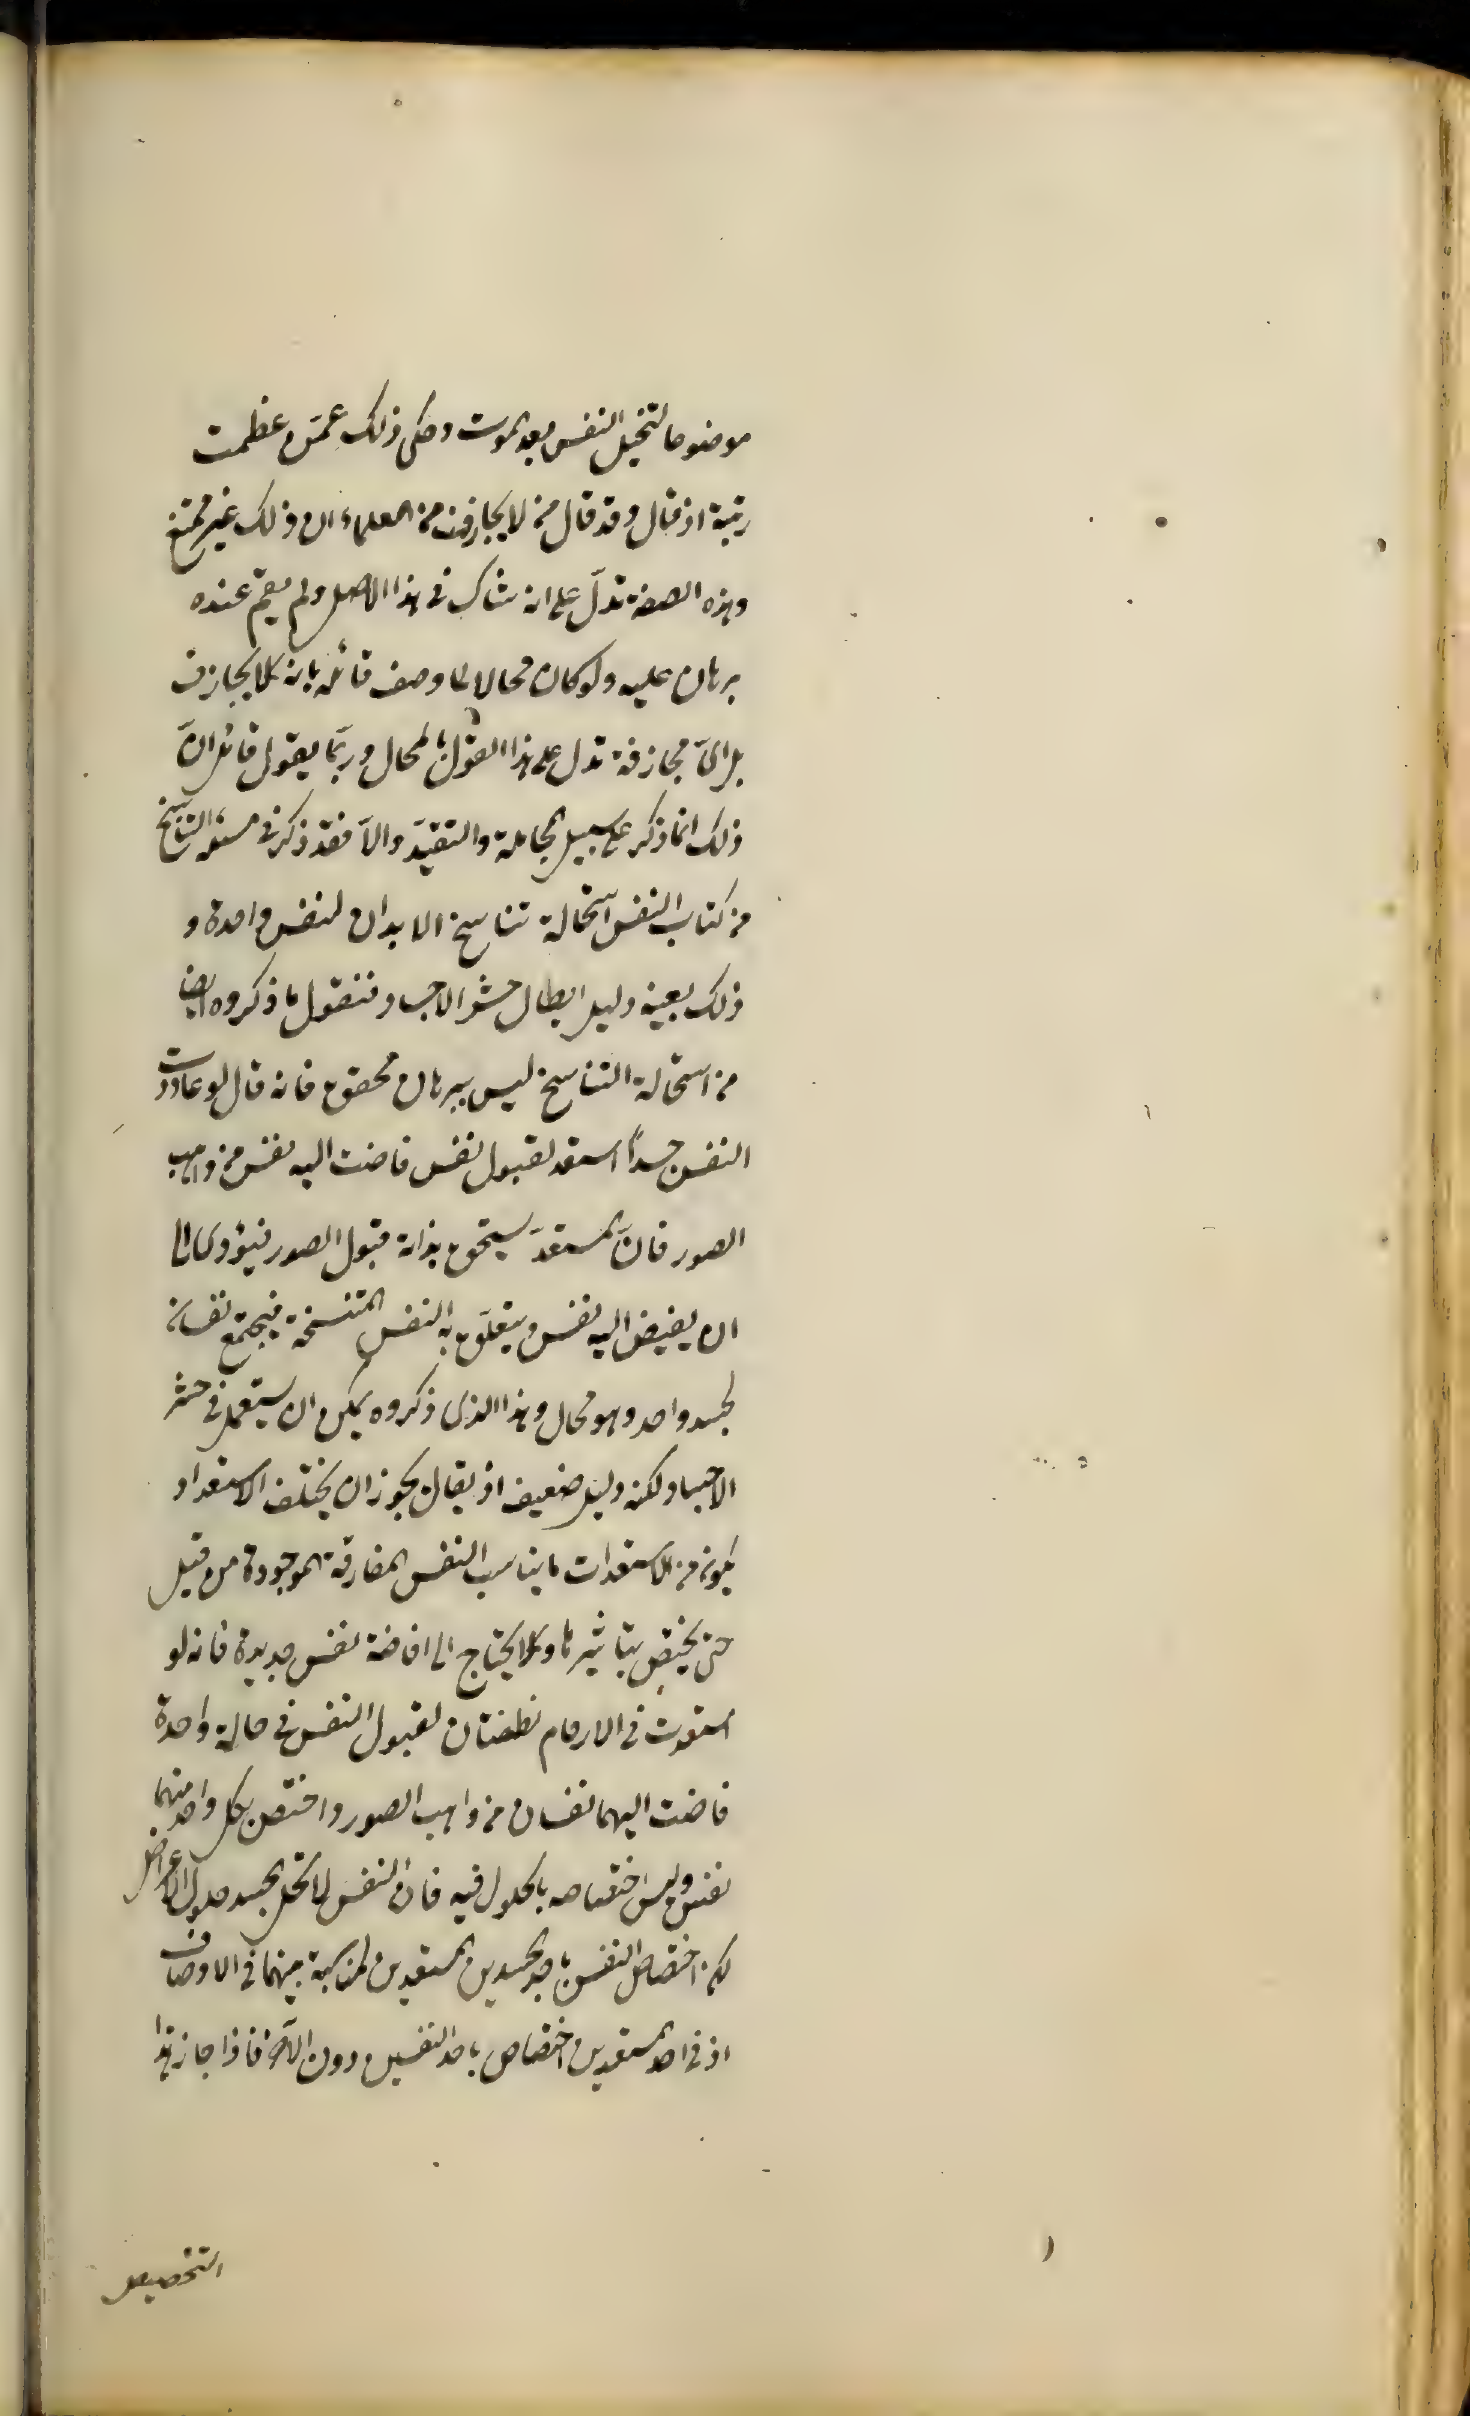 موضوعا لتخيل النفس بعد الموت وحكى ذلك عمن عظمت
رتبته اذ قال وقد قال من لا يجازف من العلماء ان ذلك غير ممتنع
وهذه الصفة تدلّ على انه شاك في هذا الاصل ولم يقم عنده
برهان عليه ولو كان محالا لما وصف قائله بانه لا يجازف
بل اىّ مجازفة تدل على هذا القول بالمحال وربّما يقول قائل انّ
ذلك انما ذكر على سبيل المجاملة والتقيّة والاّ فقد ذكر في مسئلة التناسخ
من كتاب النفس استحالة تناسخ الابدان لنفس واحدة و
ذلك بعينه دليل ابطال حشر الاجساد فنقول ما ذكروه ايضا
من استحالة التناسخ ليس ببرهان محقق فانه قال لو عاودت
النفس جسداً استعد لقبول نفس فاضت اليه نفس من واهب
الصور فانّ المستعدّ يستحق بذاته قبول الصور فيؤدى الى
ان يفيض اليه نفس ويتعلّق به النفس المتنسخة فيجتمع نفسان
لجسد واحد وهو محال وهذا الذى ذكروه يمكن ان يستعمل في حشر
الاجساد ولكنه دليل ضعيف اذ يقال يجوز ان يختلف الاستعداد
فيكون من الاستعدات ما يناسب النفس المفارقة الموجودة من قبل
حتى يختص بتاثيرها ولا يحتاج الى افاضة نفس جديدة فانه لو
استعدت في الارحام نطفتان لقبول النفس في حالة واحدة
فاضت اليهما نفسان من واهب الصور واختص بكل واحد منهما
نفس وليس اختصاصه بالحلول فيه فان النفس لا تحل الجسد حلول الاعراض
لكن اختصاص النفس باحد الجسدين المستعدين لمناسبة بينهما في الاوصاف
اذ في احد المستعدين اختصاص باحد النفسين دون الآخر فاذا جاز هذا
التخصيص